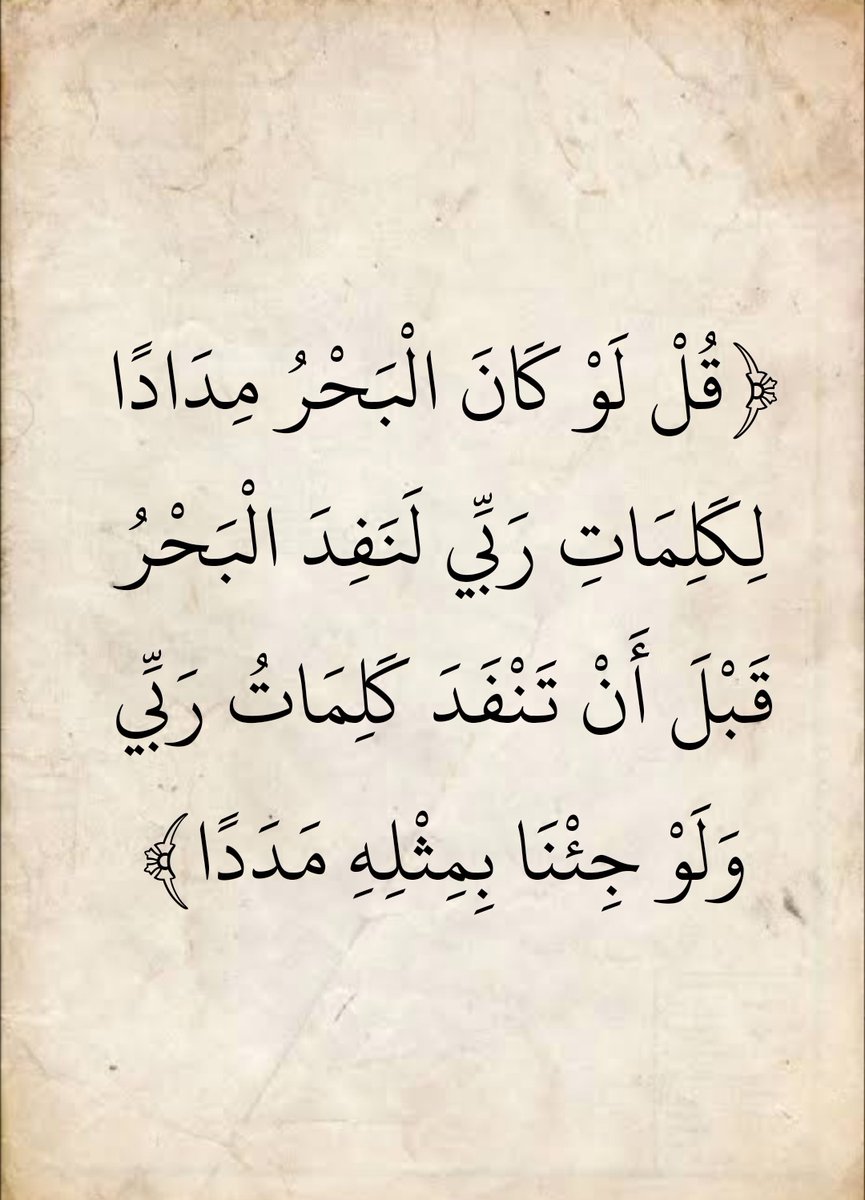 ﴿قُلْ لَوْ كَانَ الْبَحْرُ مِدَادًا
لِكَلِمَاتِ رَبِّي لَنَفِدَ الْبَحْرُ
قَبْلَ أَنْ تَنْفَدَ كَلِمَاتُ رَبِّي
وَلَوْ جِئْنَا بِمِثْلِهِ مَدَدًا﴾